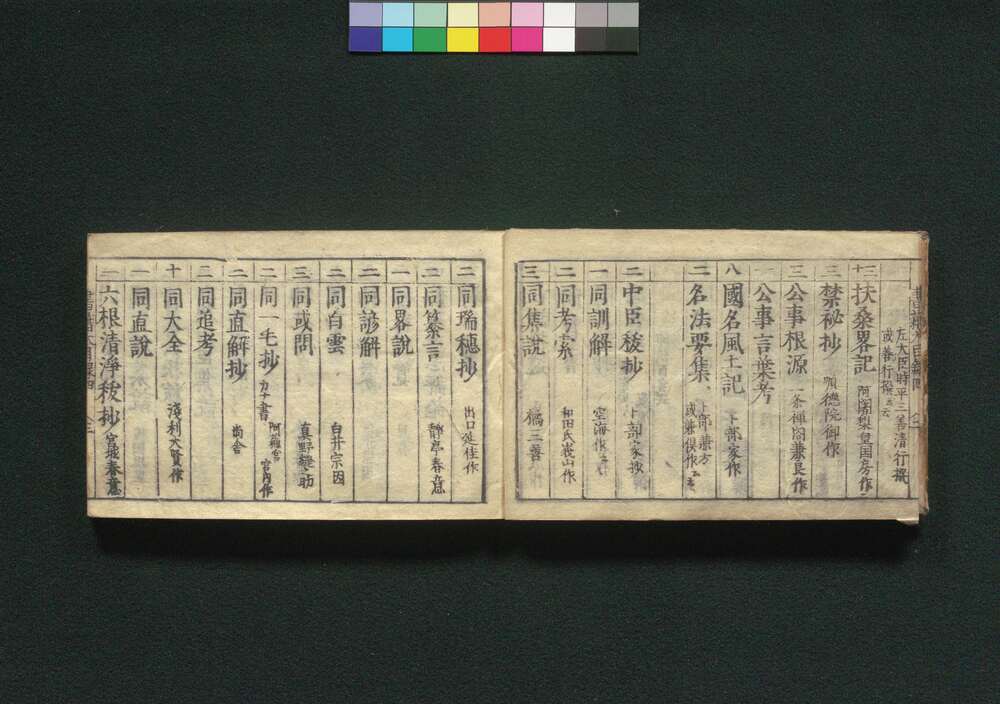 左大臣時平三善清行撰
或善行撰云云
十三 扶桑畧記 阿闍梨皇圓房作
三 禁祕抄 順德院御作
三 公事根源 一条禅閤兼良作
一 公事言葉考
八 國名風土記 卜部家作
二 名法要集 卜部兼方 或兼倶作云云
二 中臣秡抄 卜部家抄
一 同訓解 空海作云云
二 同考索 和田氏峩山作
三 同集說 橘三喜
二 同瑞穗抄 出口延佳作
二 同纂言 靜亭春意
一 同畧說
二 同諺解
二 同白雲 白井宗因
三 同或問 真野縫助
二 同一毛抄 カナ書 阿蘓宮 宮內作
二 同直解抄 尚舎
二 同追考
十 同大全 淺利大賢作
一 同直說
二 六根清淨秡抄 宮城春意